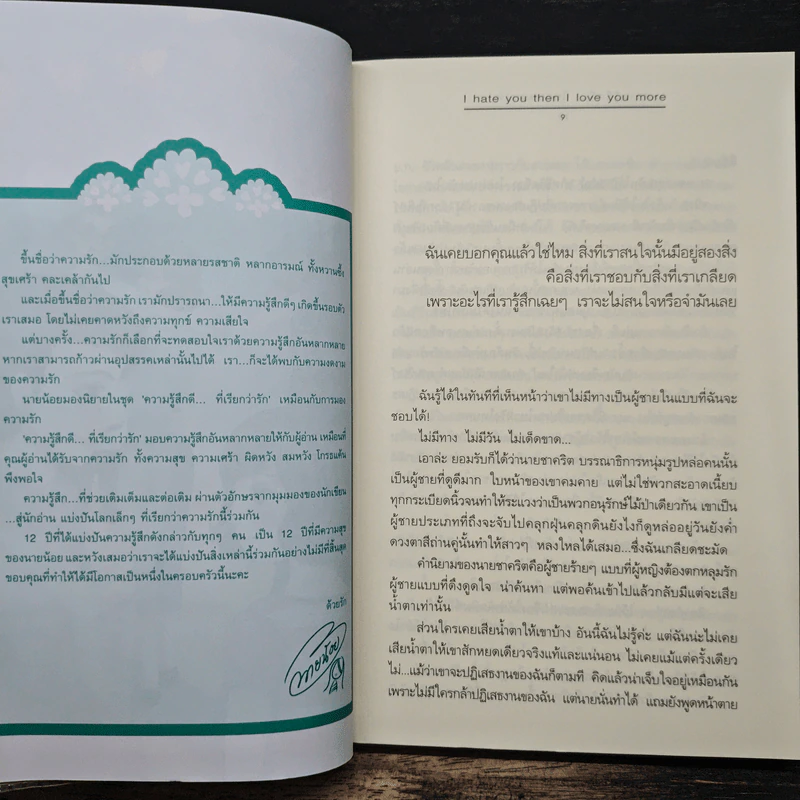 ขึ้นชื่อว่าความรัก...มักประกอบด้วยหลายรสชาติ หลากอารมณ์ ทั้งหวานซึ้ง
สุขเศร้า คละเคล้ากันไป
และเมื่อขึ้นชื่อว่าความรัก เรามักปรารถนา...ให้มีความรู้สึกดีๆ เกิดขึ้นรอบตัว
เราเสมอ โดยไม่เคยคาดหวังถึงความทุกข์ ความเสียใจ
แต่บางครั้ง...ความรักก็เลือกที่จะทดสอบใจเราด้วยความรู้สึกอันหลากหลาย
หากเราสามารถก้าวผ่านอุปสรรคเหล่านั้นไปได้ เรา...ก็จะได้พบกับความงดงาม
ของความรัก
นายน้อยมองนิยายในชุด 'ความรู้สึกดี... ที่เรียกว่ารัก' เหมือนกับการมอง
ความรัก
'ความรู้สึกดี... ที่เรียกว่ารัก' มอบความรู้สึกอันหลากหลายให้กับผู้อ่าน เหมือนที่
คุณผู้อ่านได้รับจากความรัก ทั้งความสุข ความเศร้า ผิดหวัง สมหวัง โกรธแค้น
พึงพอใจ
ความรู้สึก...ที่ช่วยเติมเต็มและต่อเติม ผ่านตัวอักษรจากมุมมองของนักเขียน
...สู่นักอ่าน แบ่งปันโลกเล็กๆ ที่เรียกว่าความรักนี้ร่วมกัน
12 ปีที่ได้แบ่งปันความรู้สึกดังกล่าวกับทุกๆ คน เป็น 12 ปีที่มีความสุข
ของนายน้อย และหวังเสมอว่าเราจะได้แบ่งปันสิ่งเหล่านี้ร่วมกันอย่างไม่มีที่สิ้นสุด
ขอบคุณที่ทำให้ได้มีโอกาสเป็นหนึ่งในครอบครัวนี้นะคะ
ด้วยรัก
นายน้อย
I hate you then I love you more
9
ฉันเคยบอกคุณแล้วใช่ไหม สิ่งที่เราสนใจนั้นมีอยู่สองสิ่ง
คือสิ่งที่เราชอบกับสิ่งที่เราเกลียด
เพราะอะไรที่เรารู้สึกเฉยๆ เราจะไม่สนใจหรือจำมันเลย
ฉันรู้ได้ในทันทีที่เห็นหน้าว่าเขาไม่มีทางเป็นผู้ชายในแบบที่ฉันจะ
ชอบได้!
ไม่มีทาง ไม่มีวัน ไม่เด็ดขาด...
เอาล่ะ ยอมรับก็ได้ว่านายชาคริต บรรณาธิการหนุ่มรูปหล่อคนนั้น
เป็นผู้ชายที่ดูดีมาก ใบหน้าของเขาคมคาย แต่ไม่ใช่พวกสะอาดเนี้ยบ
ทุกกระเบียดนิ้วจนทำให้ระแวงว่าเป็นพวกอนุรักษ์ไม้ป่าเดียวกัน เขาเป็น
ผู้ชายประเภทที่ถึงจะจับไปคลุกฝุ่นคลุกดินยังไงก็ดูหล่ออยู่วันยังค่ำ
ดวงตาสีถ่านคู่นั้นทำให้สาวๆ หลงใหลได้เสมอ...ซึ่งฉันเกลียดชะมัด
คำนิยามของนายชาคริตคือผู้ชายร้ายๆ แบบที่ผู้หญิงต้องตกหลุมรัก
ผู้ชายแบบที่ดึงดูดใจ น่าค้นหา แต่พอค้นเข้าไปแล้วกลับมีแต่จะเสีย
น้ำตาเท่านั้น
ส่วนใครเคยเสียน้ำตาให้เขาบ้าง อันนี้ฉันไม่รู้ค่ะ แต่ฉันน่ะไม่เคย
เสียน้ำตาให้เขาสักหยดเดียวจริงแท้และแน่นอน ไม่เคยแม้แต่ครั้งเดียว
ไม่...แม้ว่าเขาจะปฏิเสธงานของฉันก็ตามที คิดแล้วน่าเจ็บใจอยู่เหมือนกัน
เพราะไม่มีใครกล้าปฏิเสธงานของฉัน แต่นายนั่นทำได้ แถมยังพูดหน้าตาย